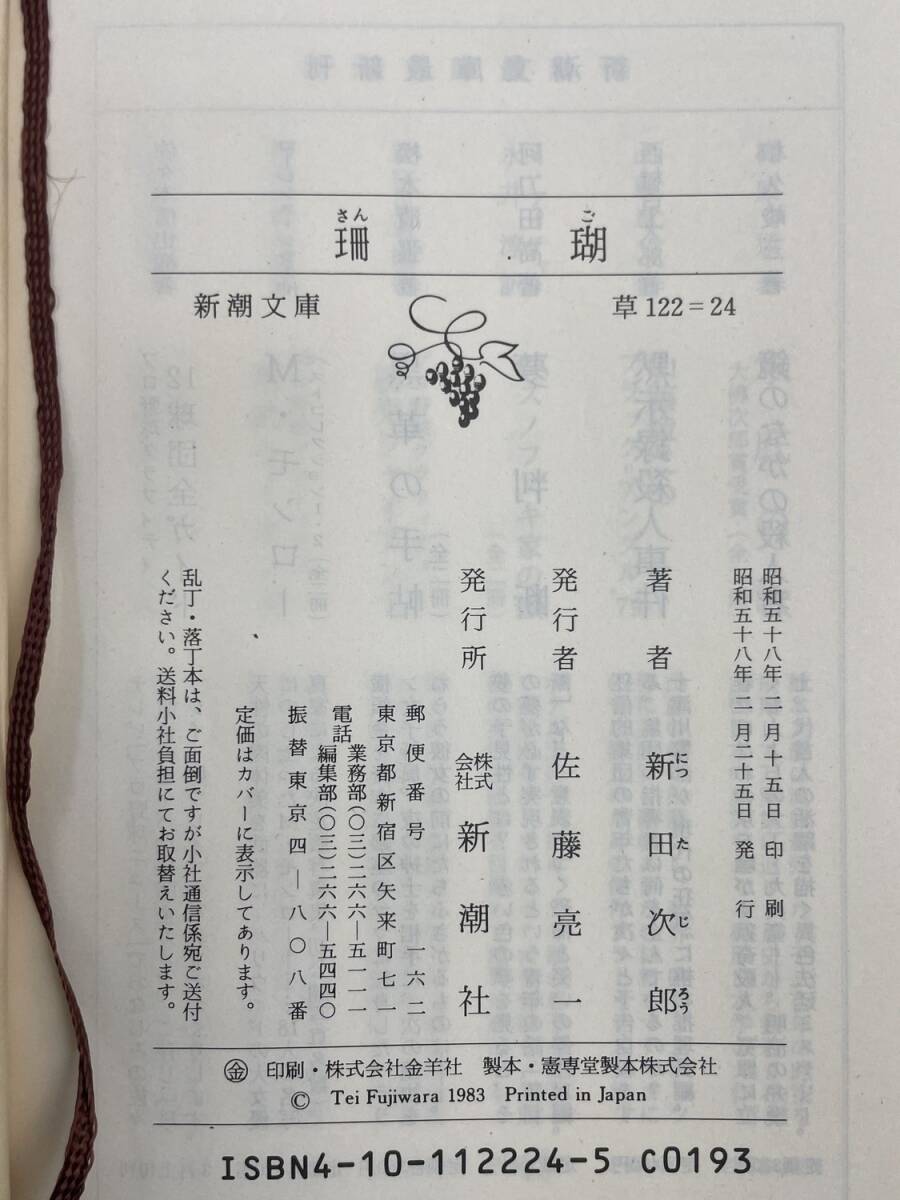 さん ご
珊瑚
新潮文庫 草122=24
昭和五十八年二月十五日印刷
昭和五十八年二月二十五日発行
著者 新田次郎
につ た じ ろう
発行者 佐藤亮一
発行所 株式会社 新潮社
郵便番号 一六二
東京都新宿区矢来町七一
電話 業務部(〇三)二六六―五一一一
編集部(〇三)二六六―五四四〇
振替東京四―八〇八番
定価はカバーに表示してあります。
乱丁・落丁本は、ご面倒ですが小社通信係宛ご送付
ください。送料小社負担にてお取替えいたします。
金 印刷・株式会社金羊社 製本・憲専堂製本株式会社
© Tei Fujiwara 1983 Printed in Japan
ISBN4-10-112224-5 C0193